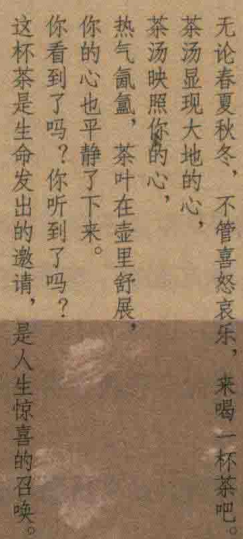 无论春夏秋冬，不管喜怒哀乐，来喝一杯茶吧。
茶汤显现大地的心，
茶汤映照你的心，
热气氤氲，茶叶在壶里舒展，
你的心也平静了下来。
你看到了吗？你听到了吗？
这杯茶是生命发出的邀请，是人生惊喜的召唤。